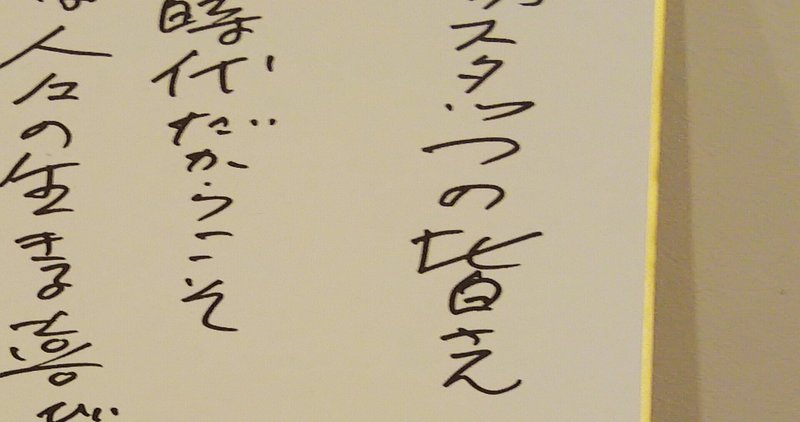 スタッフの皆さん
時代だからこそ
人々の生きる喜び